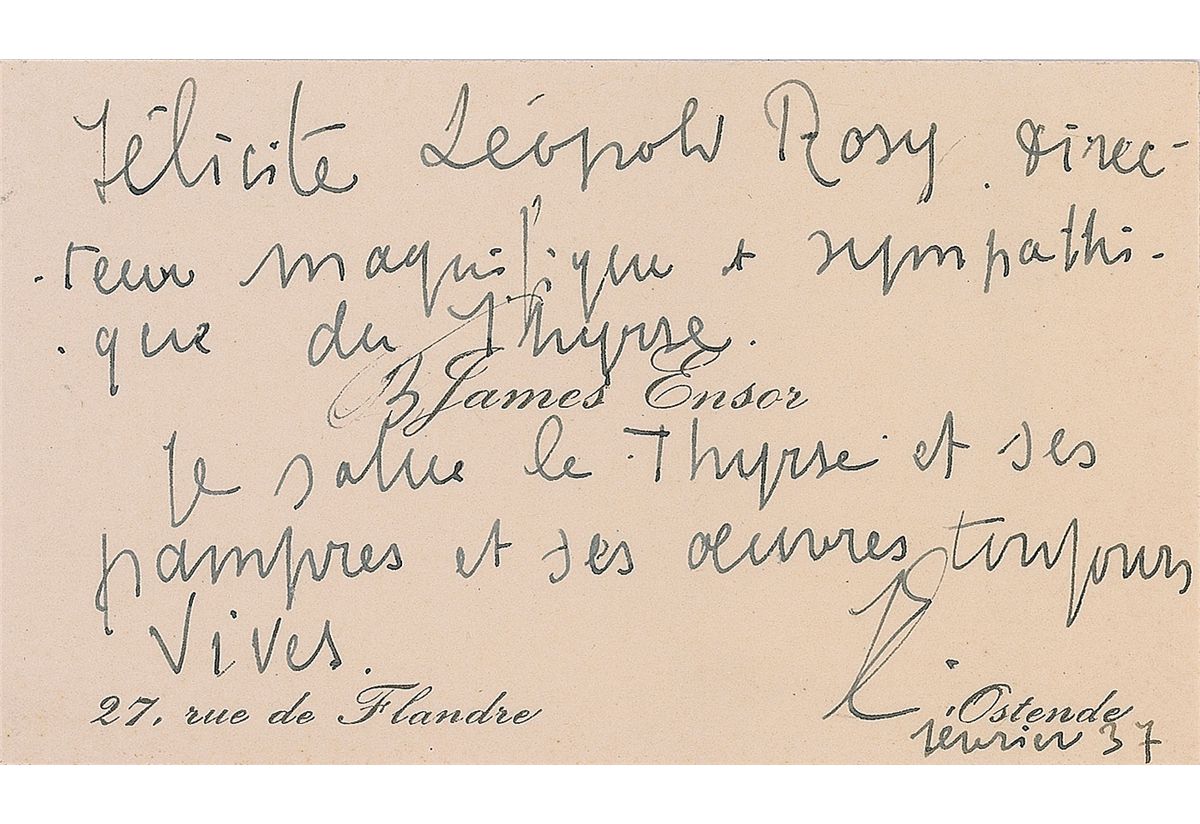 Félicite Léopold Rosy. Direc-
-teur magnifique et sympathi-
-que du Thyrse.
B James Ensor
Je salue le Thyrse et ses
pampres et ses œuvres toujours
vives.
27, rue de Flandre
Ostende
février 37